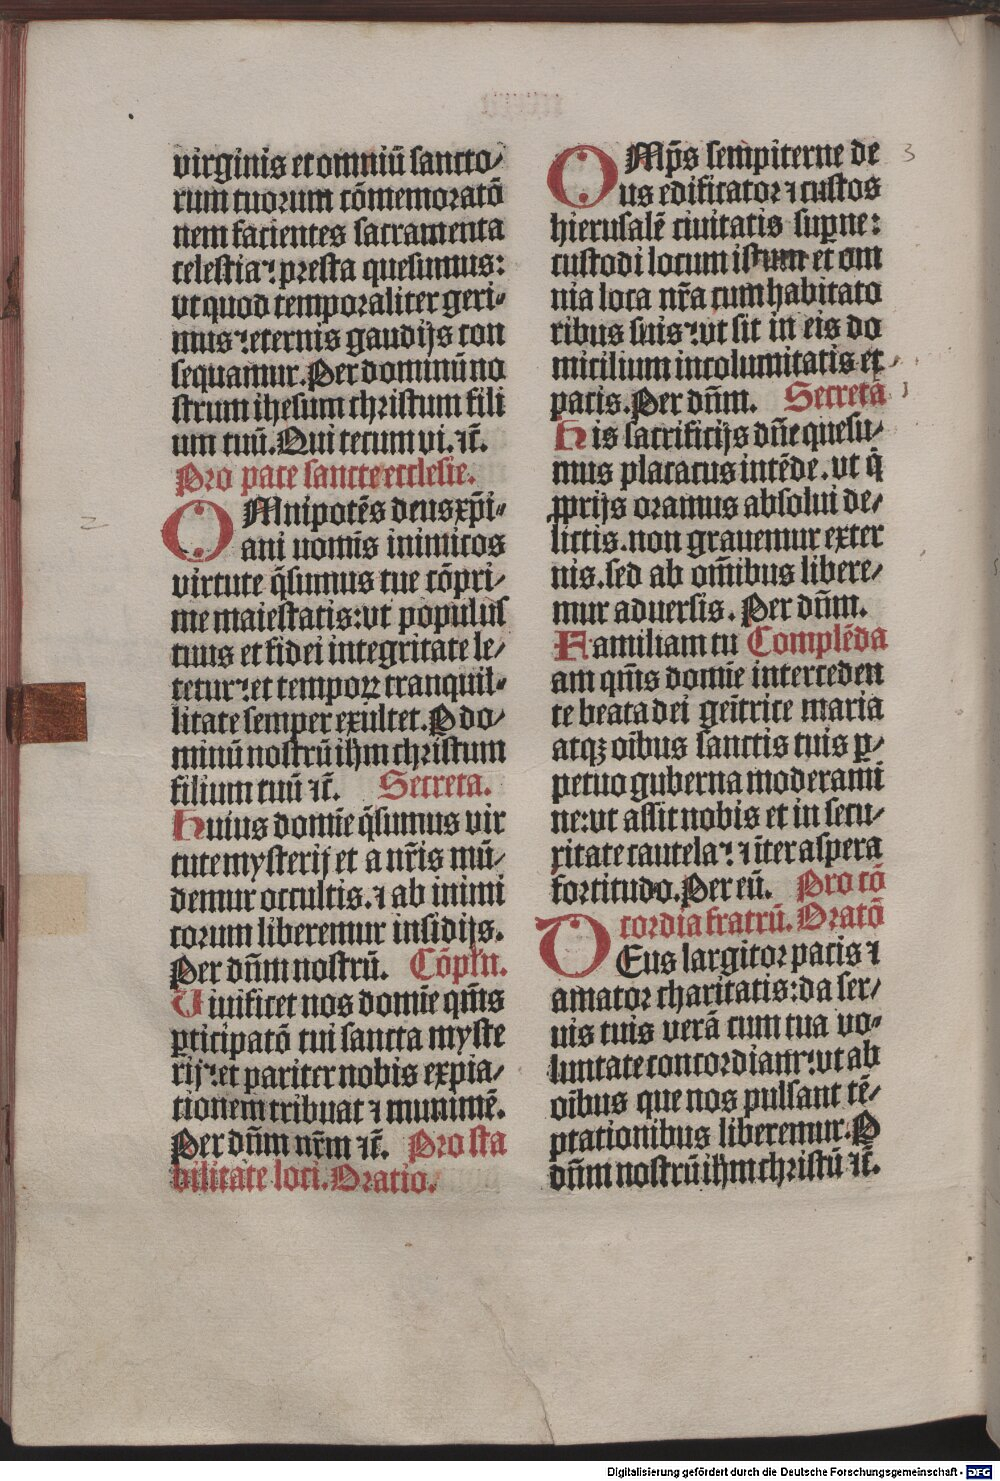 virginis et omniū sancto/
rum tuorum cōmemoratō
nem facientes sacramenta
celestia⁊ presta quesumus:
vt quod temporaliter geri/
mus⁊ eternis gaudijs con
sequamur. Per dominū no
strum ihesum christum fili
um tuū. Qui tecum vi. ⁊c̄.
Pro pace sancte ecclesie.
OMnipotēs deus xp̄i/
ani nomīs inimicos
virtute q̄sumus tue cōpri/
me maiestatis: vt populus
tuus et fidei integritate le/
tetur⁊ et temporꝝ tranquil/
litate semper exultet. P do/
minū nostrū ihm christum
filium tuū ⁊c̄. Secreta.
Huius domīe q̄sumus vir
tute mysterij et a nr̄is mū/
demur occultis. ⁊ ab inimi
corum liberemur insidijs.
Per dn̄m nostrū. Cōpln̄.
Viuificet nos domīe qm̄s
ꝑticipatō tui sancta myste
rij⁊ et pariter nobis expia/
tionem tribuat ⁊ munimē.
Per dn̄m nr̄m ⁊c̄. Pro sta
bilitate loci. Oratio.
OMp̄s sempiterne de
us edificator ⁊ custos
hierusalē ciuitatis suꝑne:
custodi locum istum et om
nia loca nr̄a cum habitato
ribus suis⁊ vt sit in eis do
micilium incolumitatis et
pacis. Per dn̄m. Secreta
His sacrificijs dn̄e quesu/
mus placatus intēde. vt q̄
ꝓprijs oramus absolui de/
lictis. non grauemur exter
nis. sed ab om̄ibus libere/
mur aduersis. Per dn̄m.
Familiam tu Complēda
am qm̄s domīe interceden
te beata dei geītrice maria
atqꝫ oībus sanctis tuis ꝑ/
petuo guberna moderami
ne: vt assit nobis et in secu/
ritate cautela⁊ ⁊ īter aspera
fortitudo. Per eū. Pro cō
cordia fratrū. Oratō
DEus largitor pacis ⁊
amator charitatis: da ser/
uis tuis verā cum tua vo/
luntate concordiam⁊ vt ab
oībus que nos pulsant tē/
ptationibus liberemur. P
dn̄m nostrū ihm christū ⁊c̄.
2
3
Digitalisierung gefördert durch die Deutsche Forschungsgemeinschaft - DFG